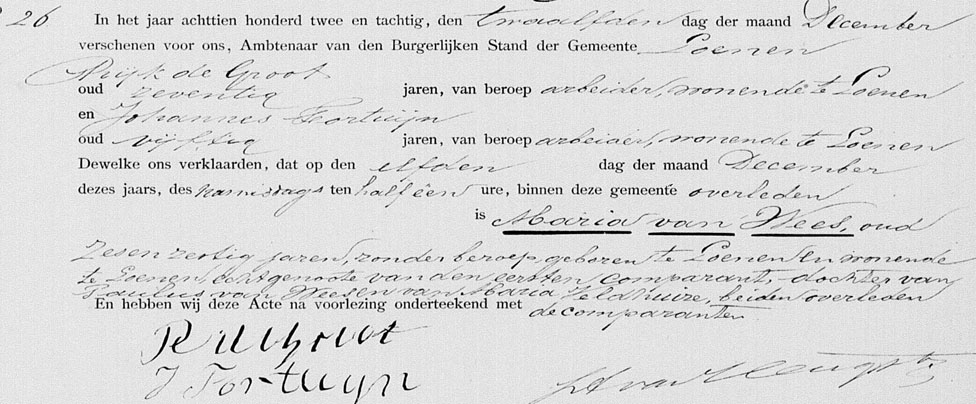 26 In het jaar achttien honderd twee en tachtig, den twaalfden dag der maand December
verschenen voor ons, Ambtenaar van den Burgerlijken Stand der Gemeente Loenen
Rijk de Groot
oud zeventig jaren, van beroep arbeider, wonende te Loenen
en Johannes Fortuijn
oud vijftig jaren, van beroep arbeider, wonende te Loenen
Dewelke ons verklaarden, dat op den elfden dag der maand December
dezes jaars, des namiddags ten half een ure, binnen deze gemeente overleden
is Maria van Wees, oud
zesenzestig jaren, zonder beroep, geboren te Loenen en wonende
te Loenen, echtgenoote van den eersten comparant, dochter van
Paulus van Wees en van Maria Veldhuize, beiden overleden
En hebben wij deze Acte na voorlezing onderteekend met de comparanten
R de Groot
J Fortuyn